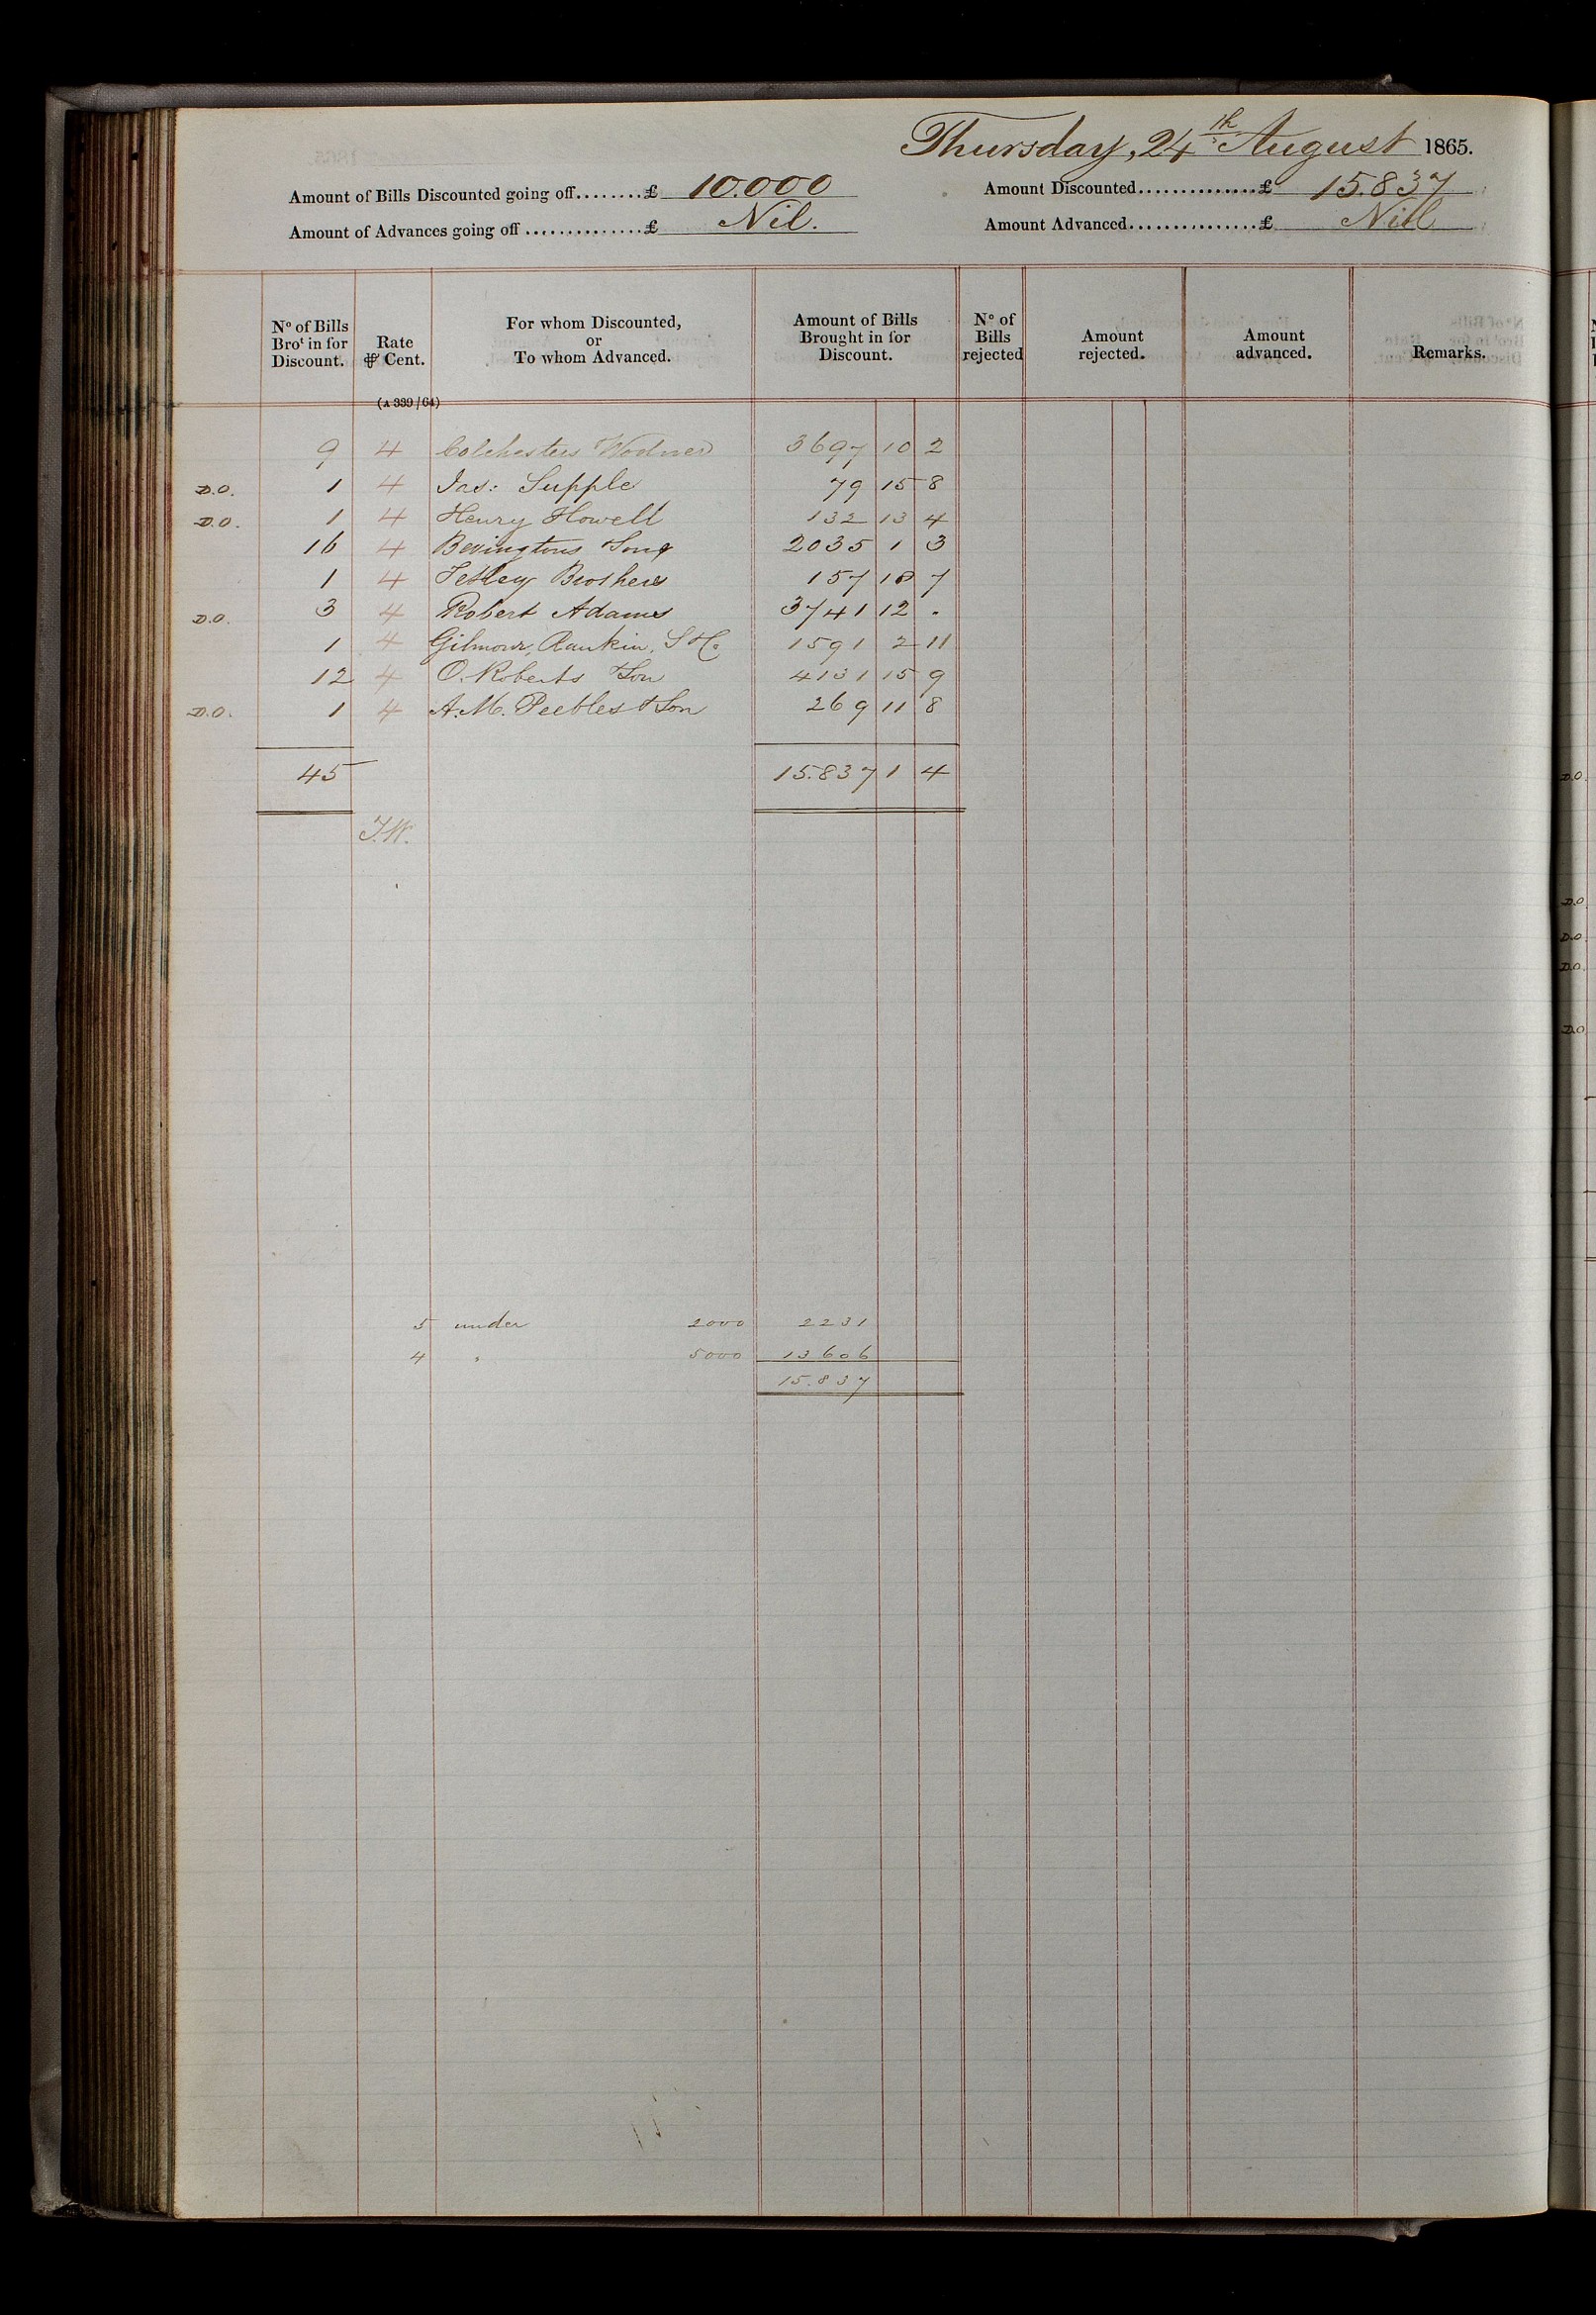 Thursday, 24th August 1865.
Amount of Bills Discounted going off........£ 10.000
Amount Discounted...............£ 15.837
Amount of Advances going off ...............£ Nil.
Amount Advanced................£ Nil
No of Bills Brot in for Discount.
Rate ⅌ Cent.
For whom Discounted, or To whom Advanced.
Amount of Bills Brought in for Discount.
No of Bills rejected
Amount rejected.
Amount advanced.
Remarks.
(A 339/64)
9 4 Colchesters 3697 10 2
D.O. 1 4 Jas: Supple 79 15 8
D.O. 1 4 Henry Howell 132 13 4
16 4 Bevingtons & Sons 2035 1 3
1 4 Tetley Brothers 157 18 7
D.O. 3 4 Robert Adams 3741 12 .
1 4 Gilmour, Rankin, S & Co 1591 2 11
12 4 O. Roberts & Son 4131 15 9
D.O. 1 4 A. M. Peebles & Son 269 11 8
45 15.837 1 4
J.W.
5 under 2000 2231
4 " 5000 13606
15.837
D.O.
D.O
D.O
D.O.
D.O